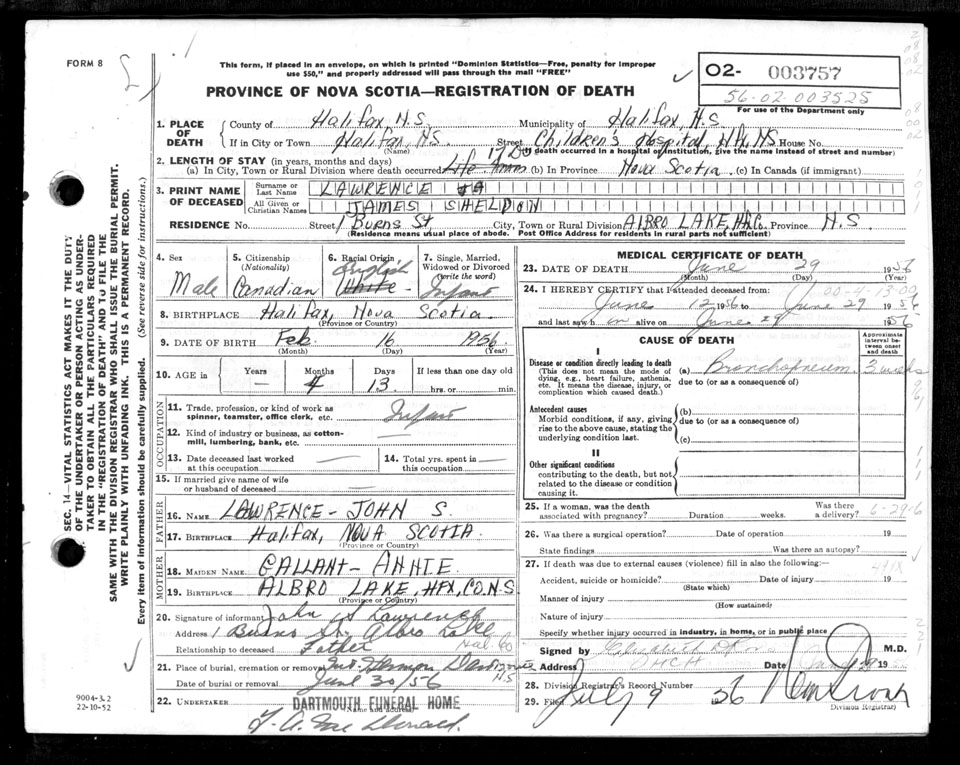 FORM 8
This form, if placed in an envelope, on which is printed "Dominion Statistics—Free, penalty for improper
use $50," and properly addressed will pass through the mail "FREE"
PROVINCE OF NOVA SCOTIA—REGISTRATION OF DEATH
O2- 003757
56-02-003525
For use of the Department only
1. PLACE OF DEATH
County of Halifax, N.S. Municipality of Halifax, N.S.
If in City or Town Halifax, N.S. Street Children's Hospital, Hfx, N.S. House No.
(Name) (If death occurred in a hospital or institution, give the name instead of street and number)
2. LENGTH OF STAY (in years, months and days)
(a) In City, Town or Rural Division where death occurred Life 17 Da (b) In Province Nova Scotia (c) In Canada (if immigrant)
3. PRINT NAME OF DECEASED
Surname or Last Name LAWRENCE
All Given or Christian Names JAMES SHELDON
RESIDENCE No. Street 1 Burns St City, Town or Rural Division ALBRO LAKE, Hfx. Co. Province N.S
(Residence means usual place of abode. Post Office Address for residents in rural parts not sufficient)
4. Sex
Male
5. Citizenship (Nationality)
Canadian
6. Racial Origin
English
White
7. Single, Married, Widowed or Divorced (write the word)
Infant
8. BIRTHPLACE Halifax, Nova Scotia
(Province or Country)
9. DATE OF BIRTH Feb. 16 1956
(Month) (Day) (Year)
10. AGE in Years — Months 4 Days 13 If less than one day old hrs. or min.
OCCUPATION
11. Trade, profession, or kind of work as spinner, teamster, office clerk, etc. Infant
12. Kind of industry or business, as cotton-mill, lumbering, bank, etc. —
13. Date deceased last worked at this occupation —
14. Total yrs. spent in this occupation —
15. If married give name of wife or husband of deceased —
FATHER
16. NAME LAWRENCE - JOHN S.
17. BIRTHPLACE Halifax, NOVA SCOTIA
(Province or Country)
MOTHER
18. MAIDEN NAME GALLANT - ANNIE
19. BIRTHPLACE ALBRO LAKE, HFX, CO. N.S
(Province or Country)
20. Signature of informant John S Lawrence
Address 1 Burns St. Albro Lake Hal. Co
Relationship to deceased Father
21. Place of burial, cremation or removal Mt. Hermon Dartmouth N.S
Date of burial or removal June 30/56
22. UNDERTAKER DARTMOUTH FUNERAL HOME
(Name and address)
MEDICAL CERTIFICATE OF DEATH
23. DATE OF DEATH June 29 1956
(Month) (Day) (Year)
00-4-13-00
24. I HEREBY CERTIFY that I attended deceased from:
June 12 1956 to June 29 1956
and last saw him alive on June 29 1956
CAUSE OF DEATH
Approximate interval between onset and death
I
Disease or condition directly leading to death
(This does not mean the mode of dying, e.g., heart failure, asthenia, etc. It means the disease, injury, or complication which caused death.)
(a) Bronchopneum. 3 weeks
due to (or as a consequence of)
Antecedent causes
Morbid conditions, if any, giving rise to the above cause, stating the underlying condition last.
(b)
due to (or as a consequence of)
(c)
II
Other significant conditions
contributing to the death, but not related to the disease or condition causing it.
25. If a woman, was the death associated with pregnancy? Duration weeks. Was there a delivery? 6-29-6
26. Was there a surgical operation? Date of operation 19
State findings Was there an autopsy?
27. If death was due to external causes (violence) fill in also the following:—
Accident, suicide or homicide? Date of injury 19
(State which)
Manner of injury
(How sustained)
Nature of injury
Specify whether injury occurred in industry, in home, or in public place
Signed by M.D.
Address Date 29 19
28. Division Registrar's Record Number
29. Filed July 9 1956
Division Registrar
SEC. 14—VITAL STATISTICS ACT MAKES IT THE DUTY
OF THE UNDERTAKER OR PERSON ACTING AS UNDER-
TAKER TO OBTAIN ALL THE PARTICULARS REQUIRED
IN THE "REGISTRATION OF DEATH" AND TO FILE THE
SAME WITH THE DIVISION REGISTRAR WHO SHALL ISSUE THE BURIAL PERMIT.
WRITE PLAINLY WITH UNFADING INK. THIS IS A PERMANENT RECORD.
Every item of information should be carefully supplied. (See reverse side for instructions.)
9004-3.2
22-10-52